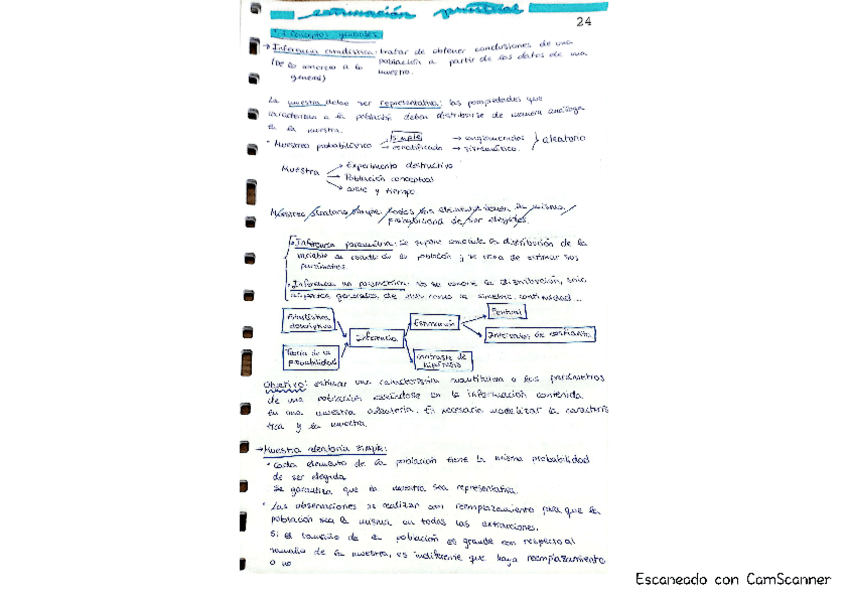 estimación puntual
24
1. Conceptos generales
→ Inferencia estadística: tratar de obtener conclusiones de una
(De lo concreto a lo población a partir de los datos de una
general) muestra.
La muestra debe ser representativa: las propiedades que
caracterizan a la población deben distribuirse de manera análoga
en la muestra.
• Muestreo probabilístico → simple → conglomerados } aleatorio
→ estratificado → sistemático.
Muestra → Experimento destructivo
→ Población conceptual
→ coste y tiempo
Muestreo aleatorio simple: todos los elementos tienen la misma
probabilidad de ser elegidos.
• Inferencia paramétrica: Se supone conocida la distribución de la
variable de estudio en la población y se trata de estimar sus
parámetros.
• Inferencia no paramétrica: No se conoce la distribución, solo
aspectos generales de ella como la simetría, continuidad...
Estadística descriptiva
Teoría de la probabilidad
Inferencia
Estimación
Contraste de hipótesis
Puntual
Intervalos de confianza
Objetivo: estimar una característica cuantitativa o los parámetros
de una población basándose en la información contenida
en una muestra aleatoria. Es necesario modelizar la caracterís
tica y la muestra.
→ Muestra aleatoria simple:
• Cada elemento de la población tiene la misma probabilidad
de ser elegida
Se garantiza que la muestra sea representativa.
• Las observaciones se realizan con reemplazamiento para que la
población sea la misma en todas las extracciones.
Si el tamaño de la población es grande con respecto al
tamaño de la muestra, es indiferente que haya reemplazamiento
o no
Escaneado con CamScanner